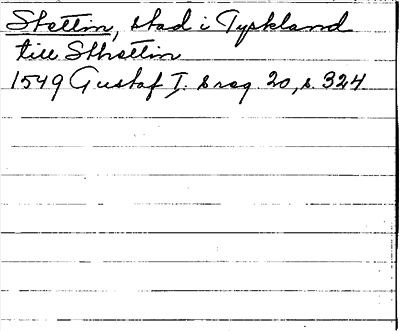 Stettin, stad i Tyskland
till Sthrettin
1549 Gustaf I:s reg. 20, s. 324